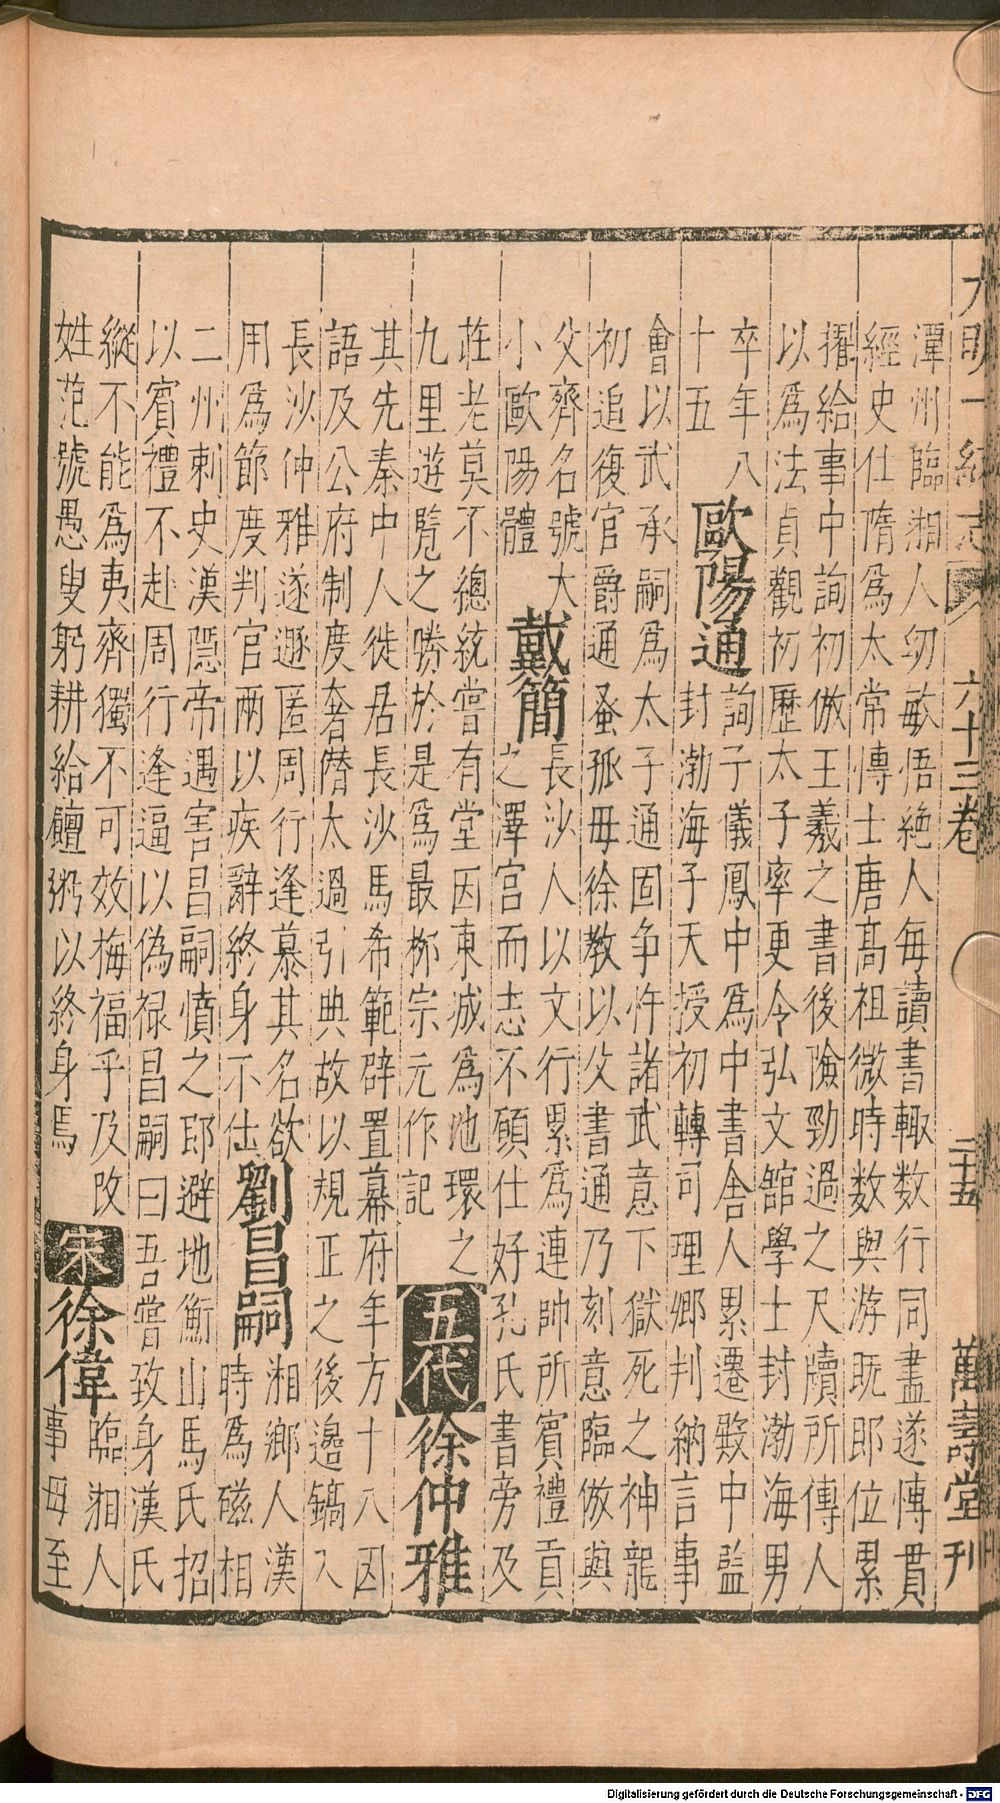 大明一統志 六十三卷 二十五 萬壽堂刊
潭州臨湘人幼敏悟絶人每讀書輙数行同盡遂博貫
經史仕隋爲太常博士唐高祖微時数與游既即位累
擢給事中詢初倣王羲之書後險勁過之尺牘所傳人
以爲法貞觀初歷太子率更令弘文館學士封渤海男
卒年八
十五
歐陽通
詢子儀鳳中爲中書舍人累遷殿中監
封渤海子天授初轉司理卿判納言事
會以武承嗣爲太子通固争忤諸武意下獄死之神龍
初追復官爵通蚤孤母徐教以父書通乃刻意臨倣與
父齊名號大
小歐陽體
戴簡
長沙人以文行累爲連帥所賓禮貢
之澤宫而志不願仕好孔氏書旁及
莊老莫不總統嘗有堂因東城爲池環之
九里遊覧之勝於是爲最栁宗元作記
五代
徐仲雅
其先秦中人徙居長沙馬希範辟置幕府年方十八因
語及公府制度奢僭太過引典故以規正之後邉鎬入
長沙仲雅遂遯匿周行逢慕其名欲
用爲節度判官兩以疾辭終身不仕
劉昌嗣
湘鄉人漢
時爲磁相
二州刺史漢隠帝遇害昌嗣憤之即避地衡山馬氏招
以賓禮不赴周行逢逼以偽禄昌嗣曰吾嘗致身漢氏
縱不能爲夷齊獨不可效梅福乎乃改
姓范號愚叟躬耕給饘粥以終身焉
宋
徐偉
臨湘人
事母至